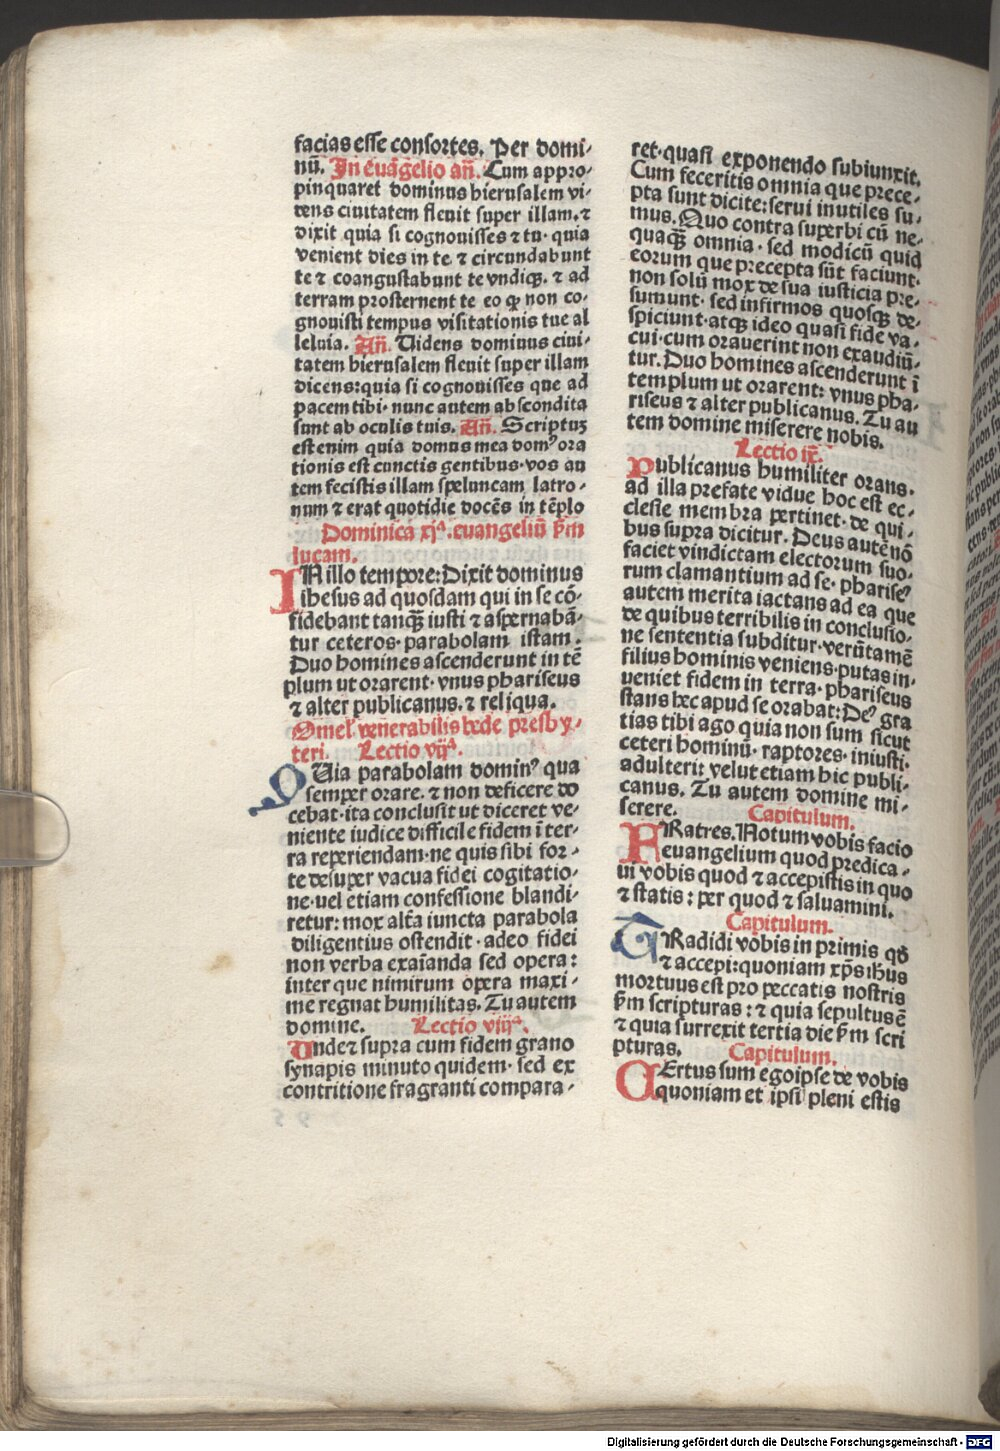 facias esse consortes. Per domi-
nū. In euāgelio añ. Cum appro-
pinquaret dominus hierusalem vi-
dens ciuitatem fleuit super illam. ⁊
dixit quia si cognouisses ⁊ tu· quia
venient dies in te. ⁊ circundabunt
te ⁊ coangustabunt te vndiqꝫ. ⁊ ad
terram prosternent te eo ꝙ non co-
gnouisti tempus visitationis tue al
leluia. Añ. Videns dominus ciui-
tatem hierusalem fleuit super illam
dicens: quia si cognouisses que ad
pacem tibi· nunc autem abscondita
sunt ab oculis tuis. Añ. Scriptuꝫ
est enim quia domus mea domꝰ ora
tionis est cunctis gentibus· vos au
tem fecistis illam speluncam latro-
num ⁊ erat quotidie docēs in tēplo
Dominica xjª. euangeliū ẜm
lucam.
IN illo tempore: Dixit dominus
ihesus ad quosdam qui in se cō-
fidebant tanqꝫ iusti ⁊ aspernabā-
tur ceteros· parabolam istam.
Duo homines ascenderunt in tē
plum ut orarent· vnus phariseus
⁊ alter publicanus. ⁊ reliqua.
Omel' venerabilis bede presby-
teri. Lectio vijª.
QVia parabolam dominꝰ qua
semper orare. ⁊ non deficere do
cebat· ita conclusit ut diceret ve-
niente iudice difficile fidem ī ter-
ra reperiendam· ne quis sibi for-
te desuper vacua fidei cogitatio-
ne· uel etiam confessione blandi-
retur: mox alťa iuncta parabola
diligentius ostendit· adeo fidei
non verba exaīanda sed opera:
inter que nimirum opera maxi-
me regnat humilitas. Tu autem
domine. Lectio viijª.
Unde ⁊ supra cum fidem grano
synapis minuto quidem· sed ex
contritione fragranti compara-
ret· quasi exponendo subiunxit.
Cum feceritis omnia que prece-
pta sunt dicite: serui inutiles su-
mus. Quo contra superbi cū ne-
quaqꝫ omnia· sed modicū quid
eorum que precepta sūt faciunt·
non solū mox de sua iusticia pre-
sumunt· sed infirmos quosqꝫ de-
spiciunt· atqꝫ ideo quasi fide va-
cui· cum orauerint non exaudiū-
tur. Duo homines ascenderunt ī
templum ut orarent: vnus pha-
riseus ⁊ alter publicanus. Tu au
tem domine miserere nobis.
Lectio ix̄.
Publicanus humiliter orans·
ad illa prefate vidue hoc est ec-
clesie membra pertinet· de qui-
bus supra dicitur. Deus autē nō
faciet vindictam electorum suo-
rum clamantium ad se· phariseꝰ
autem merita iactans ad ea que
de quibus terribilis in conclusio-
ne sententia subditur· verūtamē
filius hominis veniens· putas in-
ueniet fidem in terra· phariseus
stans hec apud se orabat: Deꝰ gra
tias tibi ago quia non sum sicut
ceteri hominū· raptores· iniusti·
adulteri: velut etiam hic publi-
canus. Tu autem domine mi-
serere. Capitulum.
FRatres. Notum vobis facio
euangelium quod predica-
ui vobis quod ⁊ accepistis in quo
⁊ statis: per quod ⁊ saluamini.
Capitulum.
TRadidi vobis in primis qđ
⁊ accepi: quoniam xp̄s ihus
mortuus est pro peccatis nostris
ẜm scripturas: ⁊ quia sepultus ē
⁊ quia surrexit tertia die ẜm scri
pturas. Capitulum.
CErtus sum ego ipse de vobis
quoniam et ipsi pleni estis
Digitalisierung gefördert durch die Deutsche Forschungsgemeinschaft - DFG